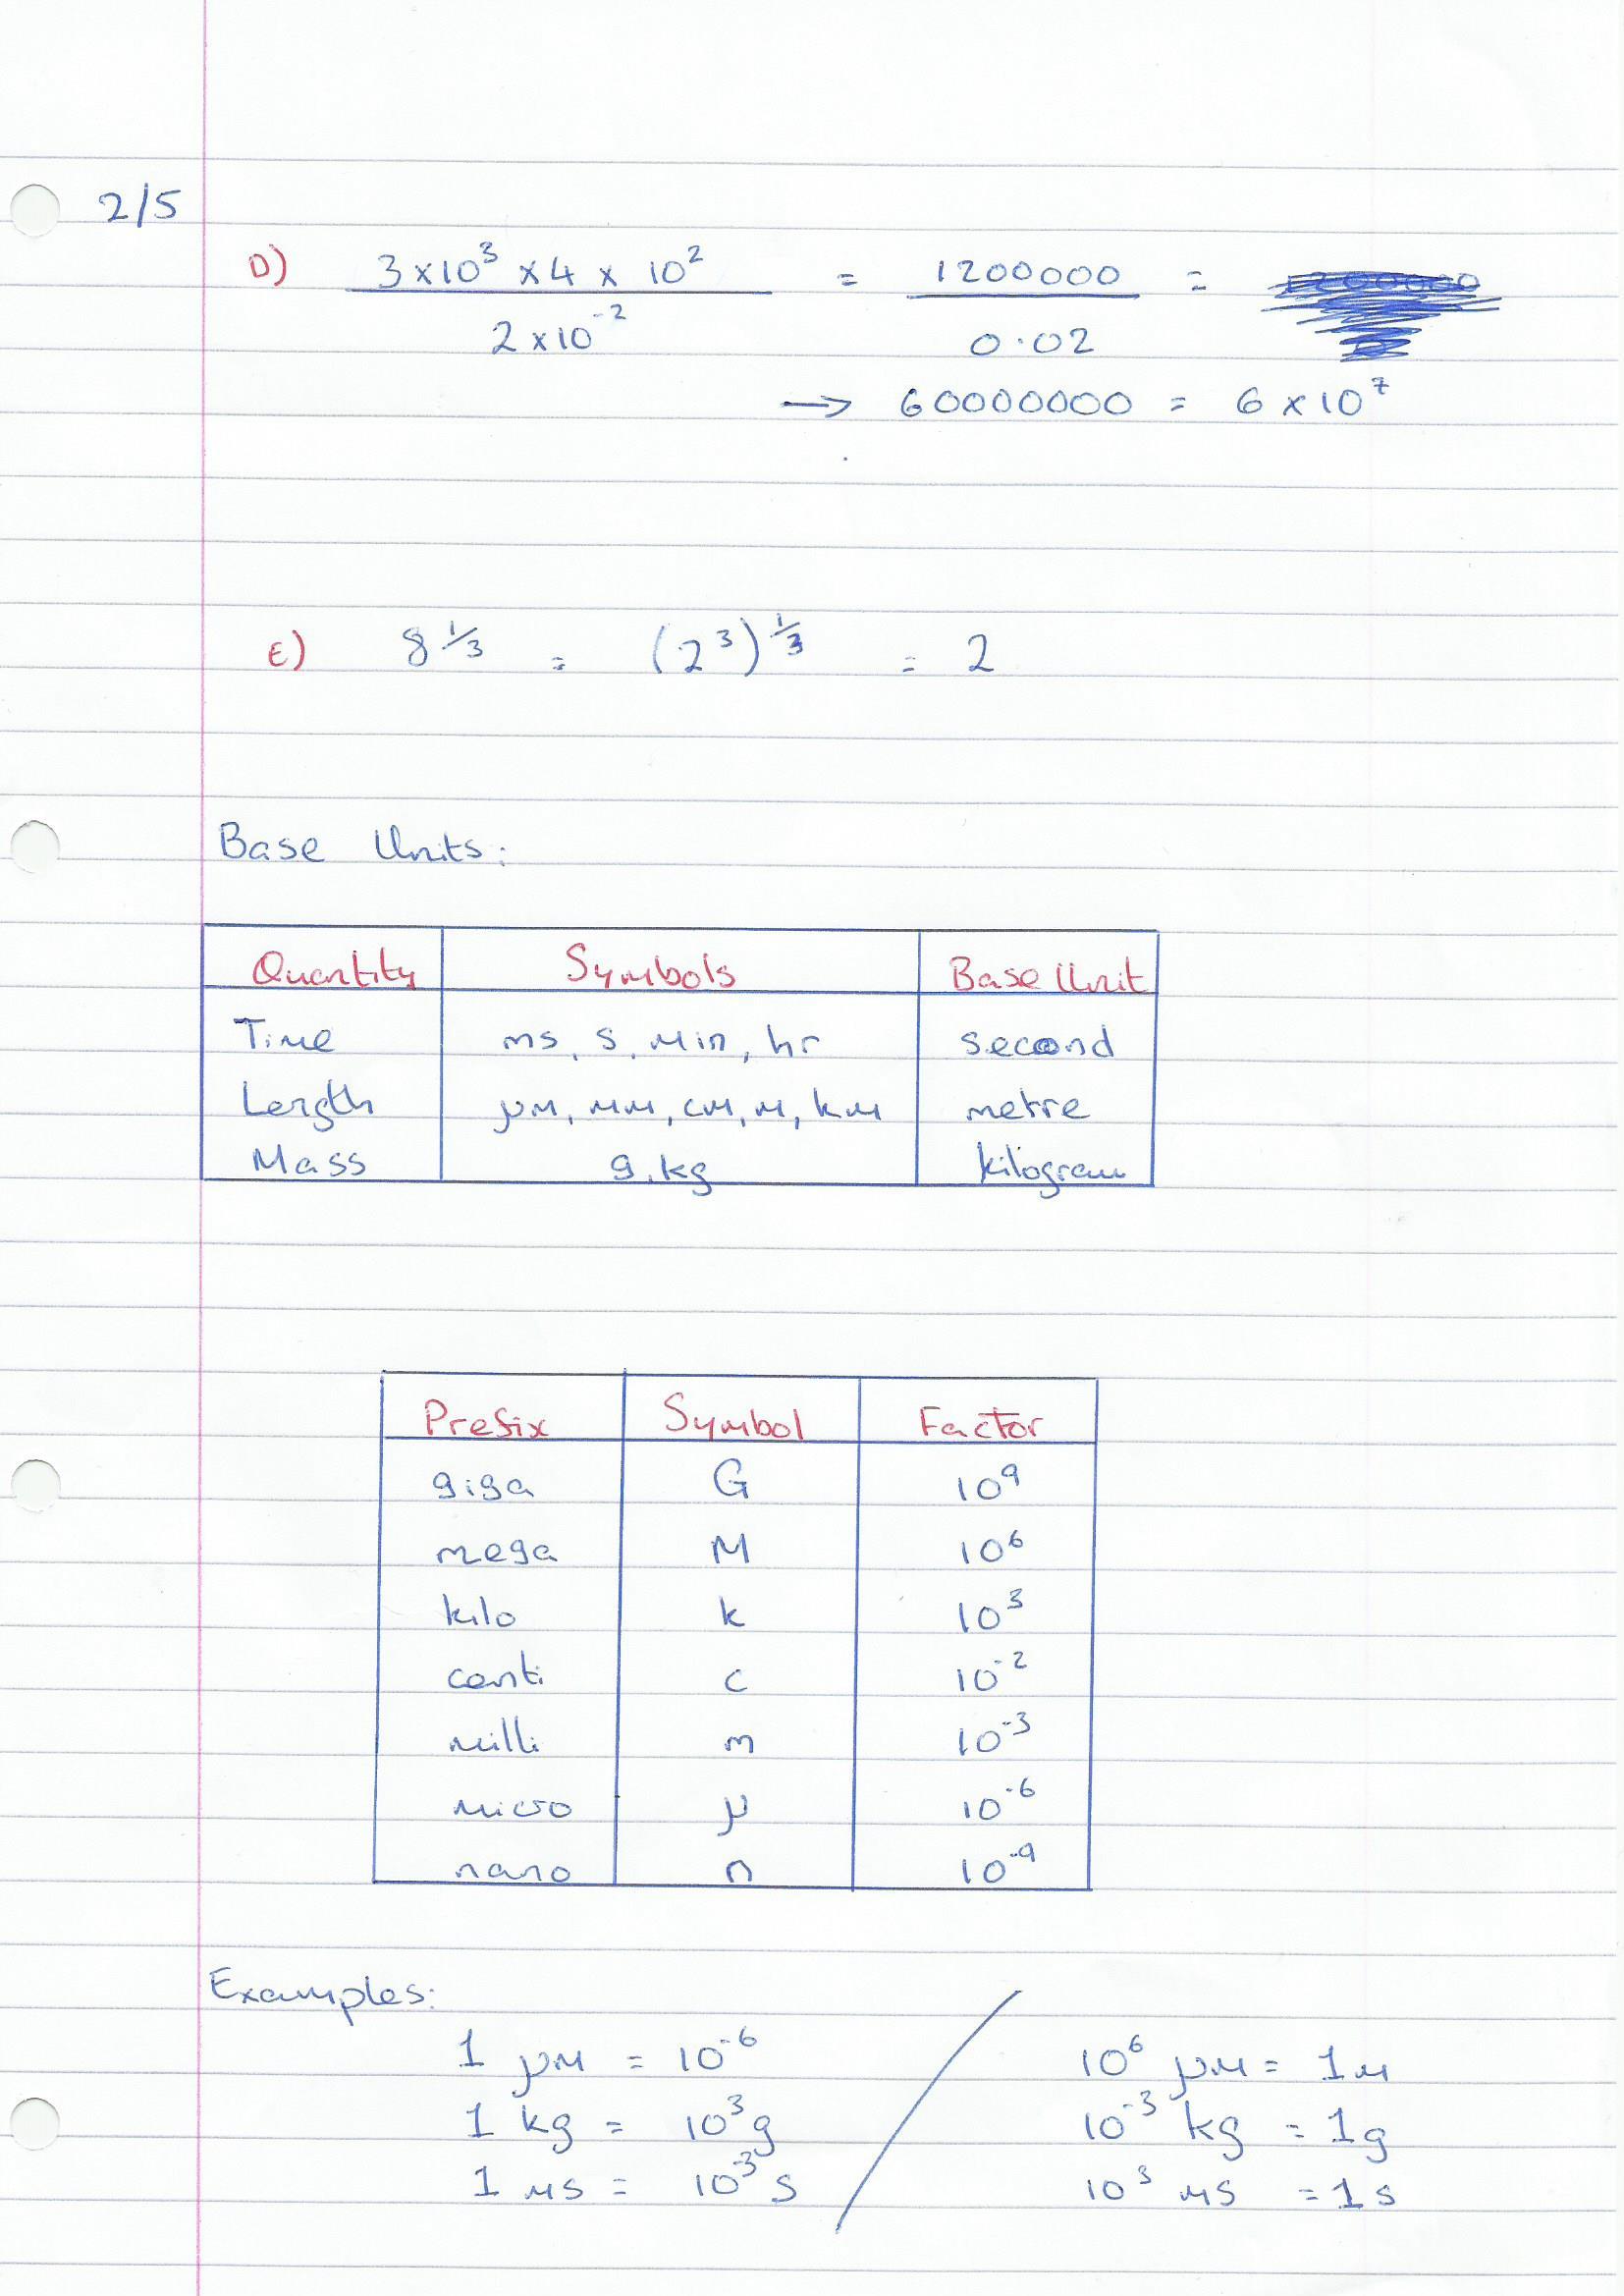 2/5
D) 3×10³ ×4 × 10² = 1200000 =
2×10⁻² 0.02
→ 60000000 = 6×10⁷
E) 8^1/3 = (2³)^1/3 = 2
Base Units:
Quantity Symbols Base Unit
Time ms, s, min, hr second
Length μm, mm, cm, m, km metre
Mass g, kg kilogram
Prefix Symbol Factor
giga G 10⁹
mega M 10⁶
kilo k 10³
centi c 10⁻²
milli m 10⁻³
micro μ 10⁻⁶
nano n 10⁻⁹
Examples:
1 μm = 10⁻⁶ / 10⁶ μm = 1m
1 kg = 10³g 10⁻³ kg = 1g
1 ms = 10⁻³ s 10³ ms = 1s